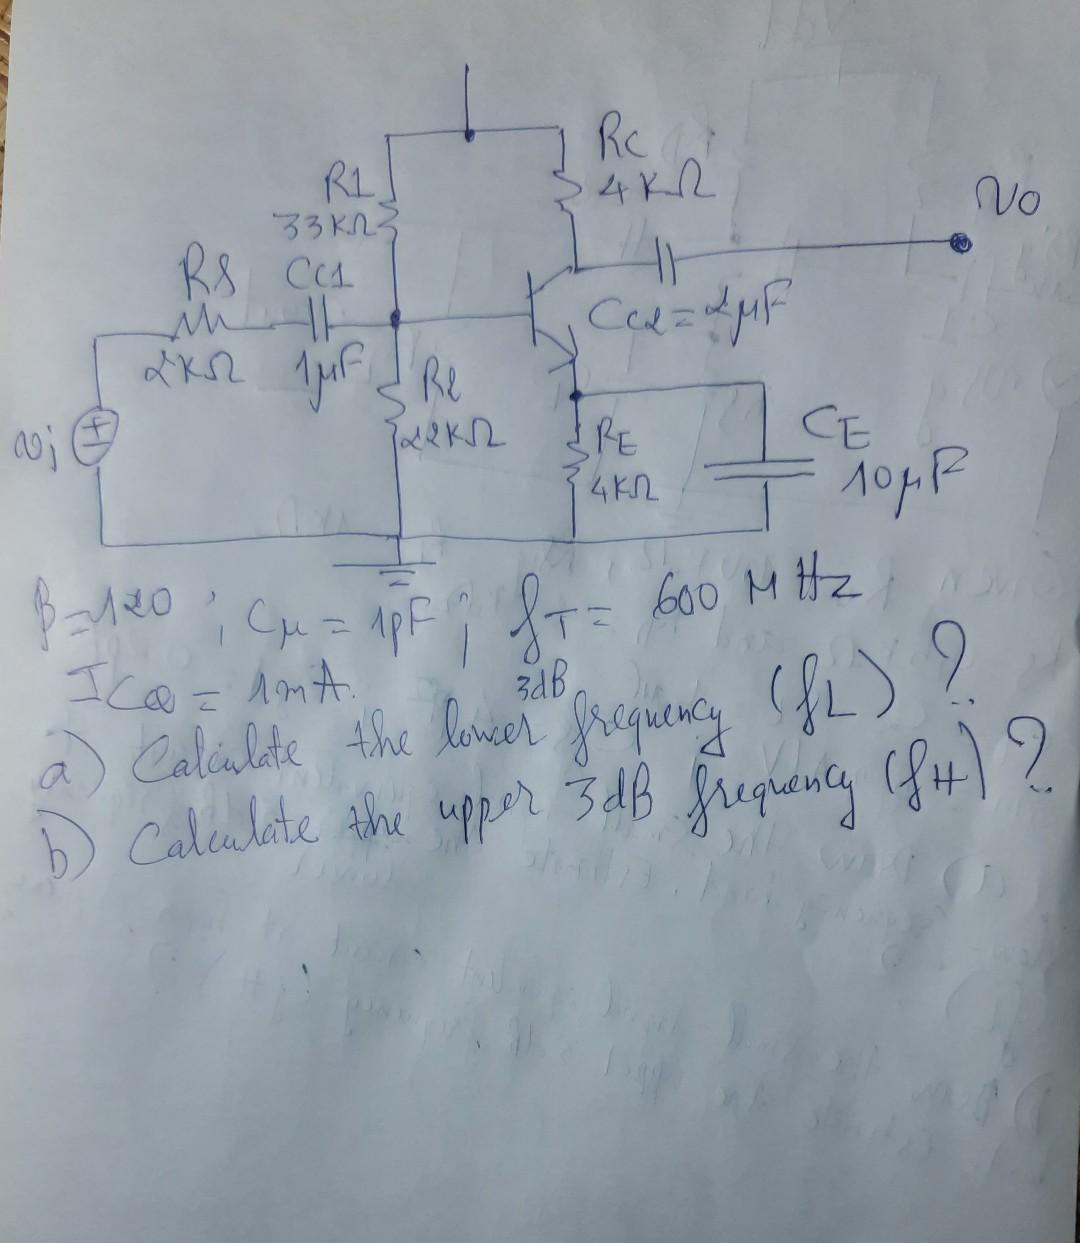 RC
4KΩ
R1
33KΩ
vo
RS
CC1
CC2=2μF
2KΩ
1μF
R2
22KΩ
vi
RE
4KΩ
CE
10μF
β=120 ; Cμ = 1pF ; fT = 600 MHz
ICQ = 1mA.
a) Calculate the lower 3dB frequency (fL) ?
b) Calculate the upper 3dB frequency (fH) ?